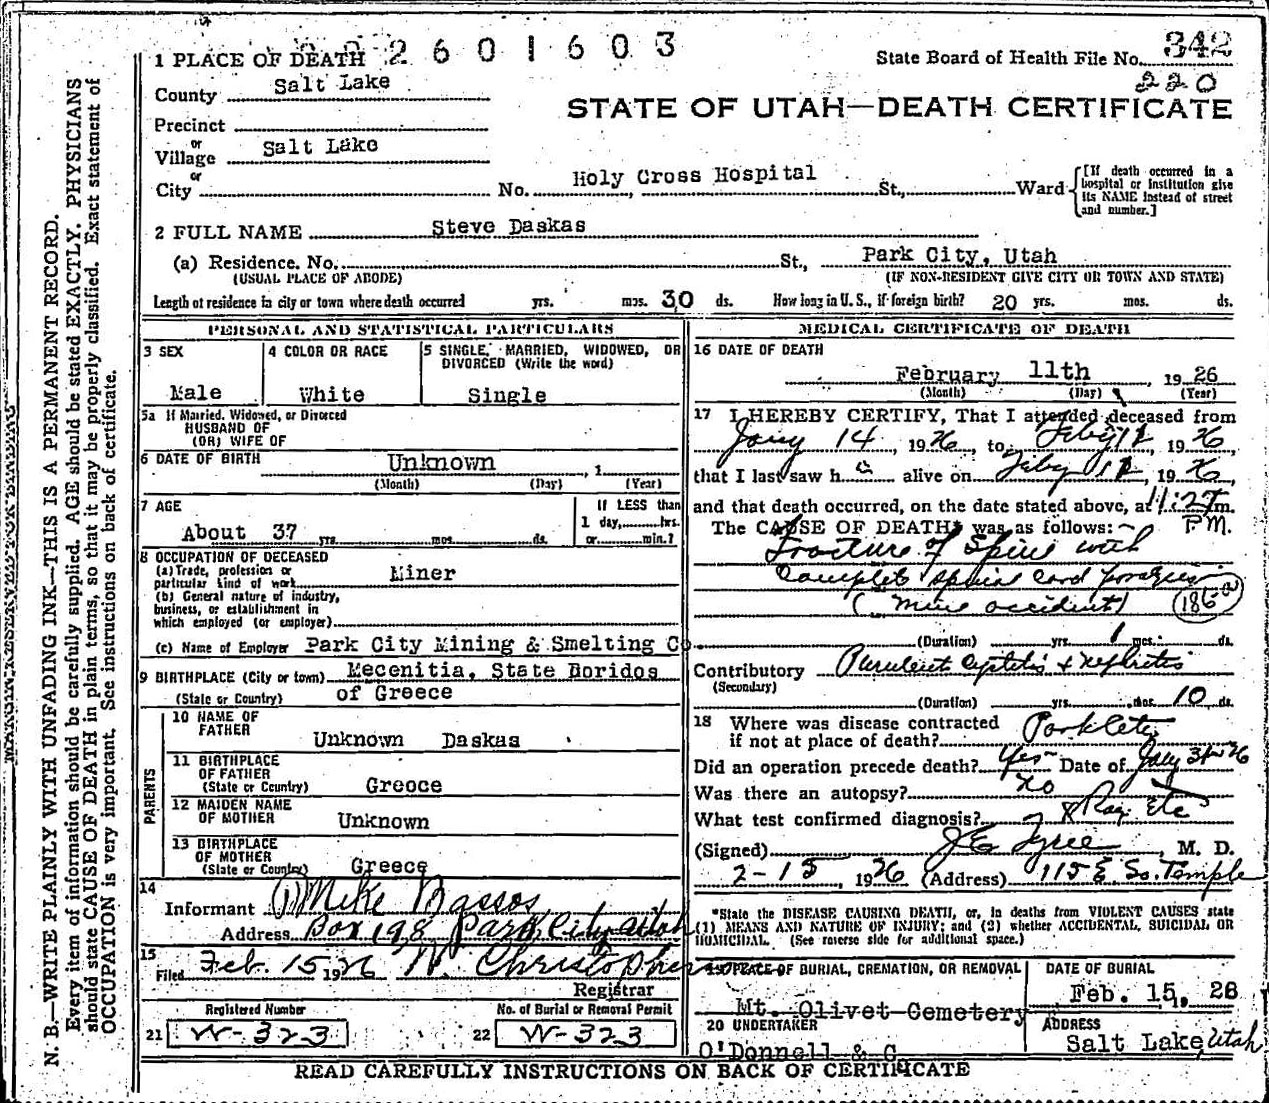 2601603
1 PLACE OF DEATH
State Board of Health File No. 342
220
County Salt Lake
STATE OF UTAH—DEATH CERTIFICATE
Precinct
or
Village Salt Lake
or
City No. Holy Cross Hospital St., Ward
[If death occurred in a
hospital or institution give
its NAME instead of street
and number.]
2 FULL NAME Steve Daskas
(a) Residence. No. St., Park City, Utah
(USUAL PLACE OF ABODE) (IF NON-RESIDENT GIVE CITY OR TOWN AND STATE)
Length of residence in city or town where death occurred yrs. mos. 30 ds. How long in U. S., if foreign birth? 20 yrs. mos. ds.
PERSONAL AND STATISTICAL PARTICULARS
3 SEX
Male
4 COLOR OR RACE
White
5 SINGLE, MARRIED, WIDOWED, OR
DIVORCED (Write the word)
Single
5a If Married, Widowed, or Divorced
HUSBAND OF
(OR) WIFE OF
6 DATE OF BIRTH Unknown , 1
(Month) (Day) (Year)
7 AGE
About 37 yrs. mos. ds.
If LESS than
1 day, hrs.
or min.?
8 OCCUPATION OF DECEASED
(a) Trade, profession or
particular kind of work Miner
(b) General nature of industry,
business, or establishment in
which employed (or employer)
(c) Name of Employer Park City Mining & Smelting Co.
9 BIRTHPLACE (City or town) Mecenitia, State Doridos
(State or Country) of Greece
PARENTS
10 NAME OF
FATHER
Unknown Daskas
11 BIRTHPLACE
OF FATHER
(State or Country) Greece
12 MAIDEN NAME
OF MOTHER Unknown
13 BIRTHPLACE
OF MOTHER
(State or Country) Greece
14
Informant Mike Bassos
Address Box 198 Park City Utah
15
Filed Feb. 15 1926 W. Christopher
Registrar
Registered Number
21 W-323
No. of Burial or Removal Permit
22 W-323
MEDICAL CERTIFICATE OF DEATH
16 DATE OF DEATH
February 11th, 1926
(Month) (Day) (Year)
17 I HEREBY CERTIFY, That I attended deceased from
Jany 14 1926, to Feby 11, 1926
that I last saw h alive on Feby 11, 1926,
and that death occurred, on the date stated above, at 11:27 m.
The CAUSE OF DEATH was as follows: P.M.
Fracture of Spine with
Complete spinal cord
(mine accident) 186
(Duration) yrs. 1 mos. ds.
Contributory Purulent Cystitis & Nephritis
(Secondary)
(Duration) yrs. mos. 10 ds.
18 Where was disease contracted
if not at place of death? Park City
Did an operation precede death? Yes Date of Jany 26
Was there an autopsy? No
What test confirmed diagnosis? X Ray Etc
(Signed) J E Tyree, M. D.
2-15, 1926 (Address) 115 E So. Temple
*State the DISEASE CAUSING DEATH, or, in deaths from VIOLENT CAUSES state
(1) MEANS AND NATURE OF INJURY; and (2) whether ACCIDENTAL, SUICIDAL OR
HOMICIDAL. (See reverse side for additional space.)
19 PLACE OF BURIAL, CREMATION, OR REMOVAL
Mt. Olivet Cemetery
DATE OF BURIAL
Feb. 15, 26
20 UNDERTAKER
O'Donnell & C
ADDRESS
Salt Lake, Utah
READ CAREFULLY INSTRUCTIONS ON BACK OF CERTIFICATE
MARGIN RESERVED FOR BINDING
N. B.—WRITE PLAINLY WITH UNFADING INK—THIS IS A PERMANENT RECORD.
Every item of information should be carefully supplied. AGE should be stated EXACTLY. PHYSICIANS
should state CAUSE OF DEATH in plain terms, so that it may be properly classified. Exact statement of
OCCUPATION is very important. See instructions on back of certificate.